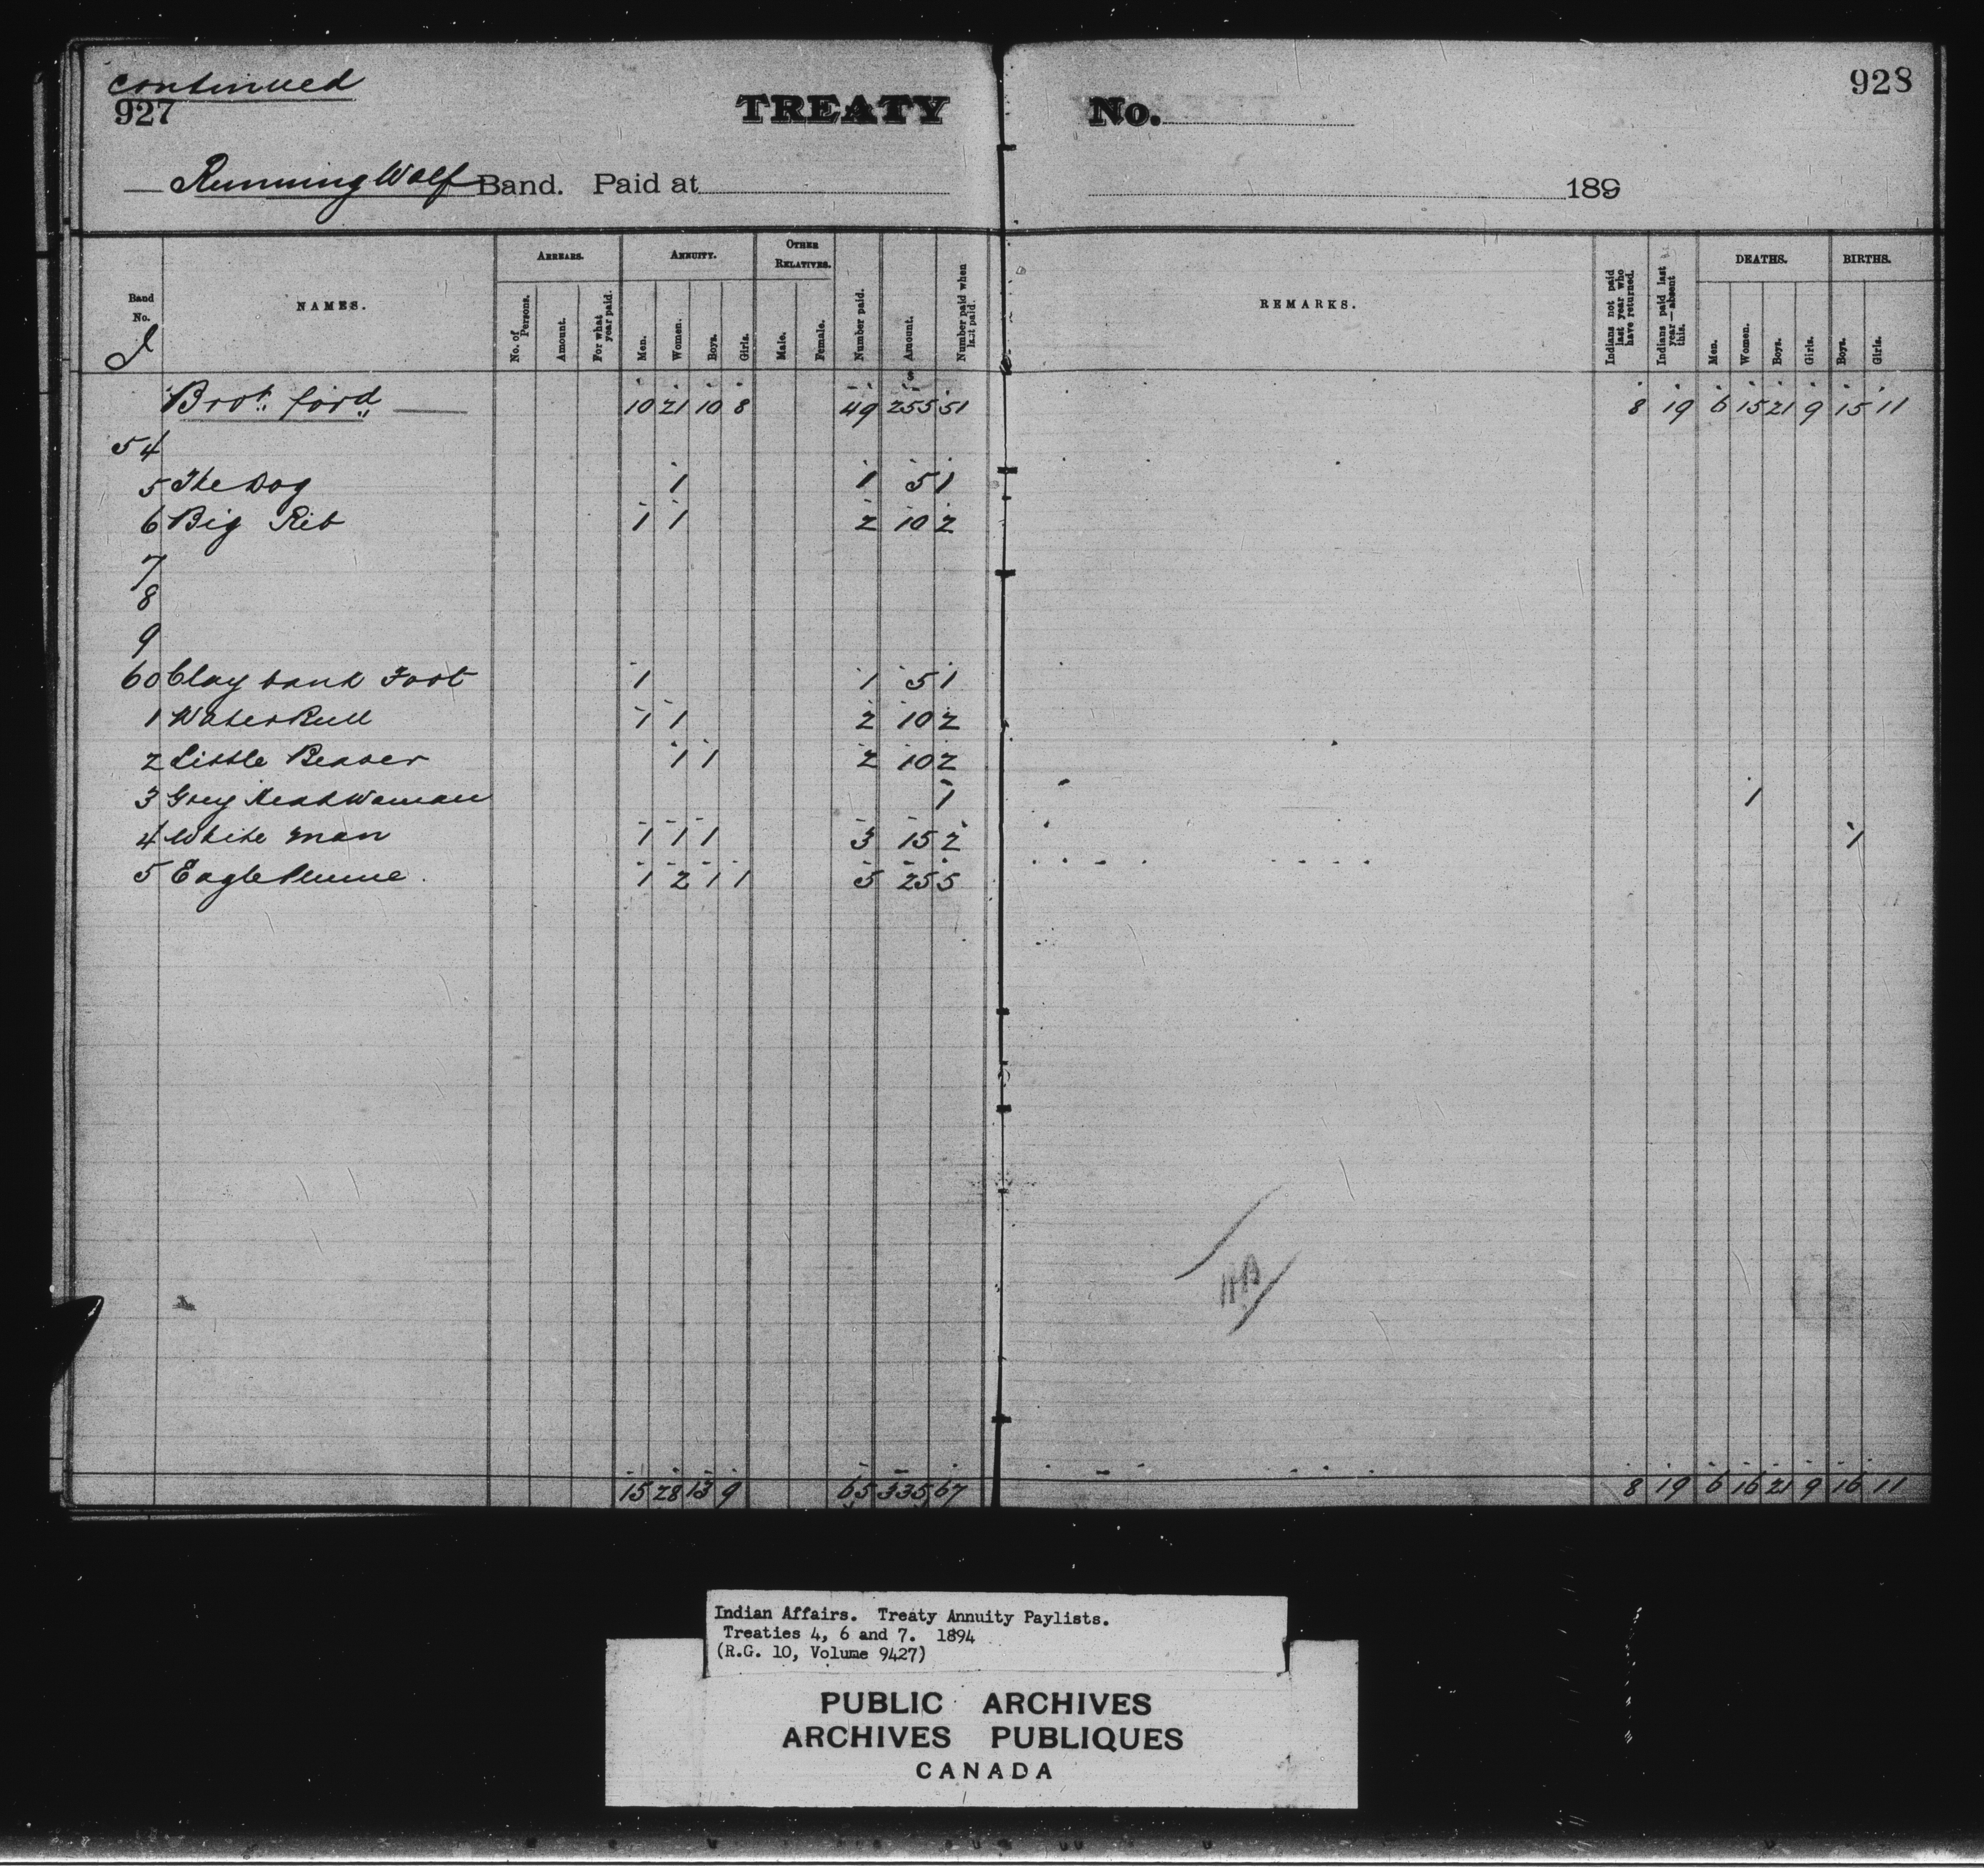 continued
927
TREATY No.
928
Running Wolf Band. Paid at 189
Band No.
NAMES.
ARREARS.
No. of Persons.
Amount.
For what year paid.
ANNUITY.
Men.
Women.
Boys.
Girls.
OTHER RELATIVES.
Male.
Female.
Number paid.
Amount.
Number paid when last paid.
REMARKS.
Indians not paid last year who have returned.
Indians paid last year—absent this.
DEATHS.
Men.
Women.
Boys.
Girls.
BIRTHS.
Boys.
Girls.
$
Brot. ford 10 21 10 8 49 255 51 8 19 6 15 21 9 15 11
54
5 The Dog 1 1 5 1
6 Big Rib 1 1 2 10 2
7
8
9
60 Clay bank Foot 1 1 5 1
1 Water Bull 1 1 2 10 2
2 Little Beaver 1 1 2 10 2
3 Grey Head Woman 1 1
4 White Man 1 1 1 3 15 2 1
5 Eagle Plume. 1 2 1 1 5 25 5
15 28 13 9 65 335 67 8 19 6 16 21 9 16 11
Indian Affairs. Treaty Annuity Paylists.
Treaties 4, 6 and 7. 1894
(R.G. 10, Volume 9427)
PUBLIC ARCHIVES
ARCHIVES PUBLIQUES
CANADA